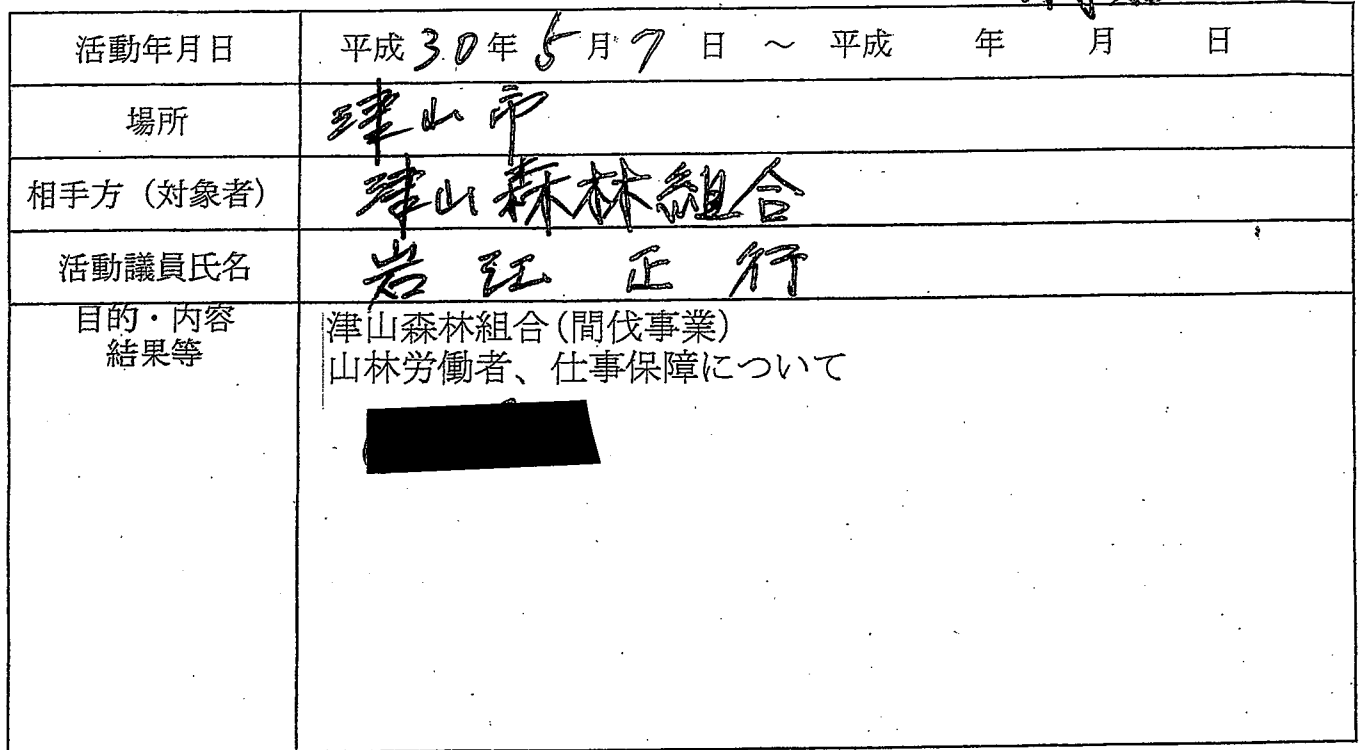 活動年月日 平成30年5月7日 ～ 平成 年 月 日
場所 津山市
相手方（対象者） 津山森林組合
活動議員氏名 岩江正行
目的・内容 津山森林組合(間伐事業)
結果等 山林労働者、仕事保障について